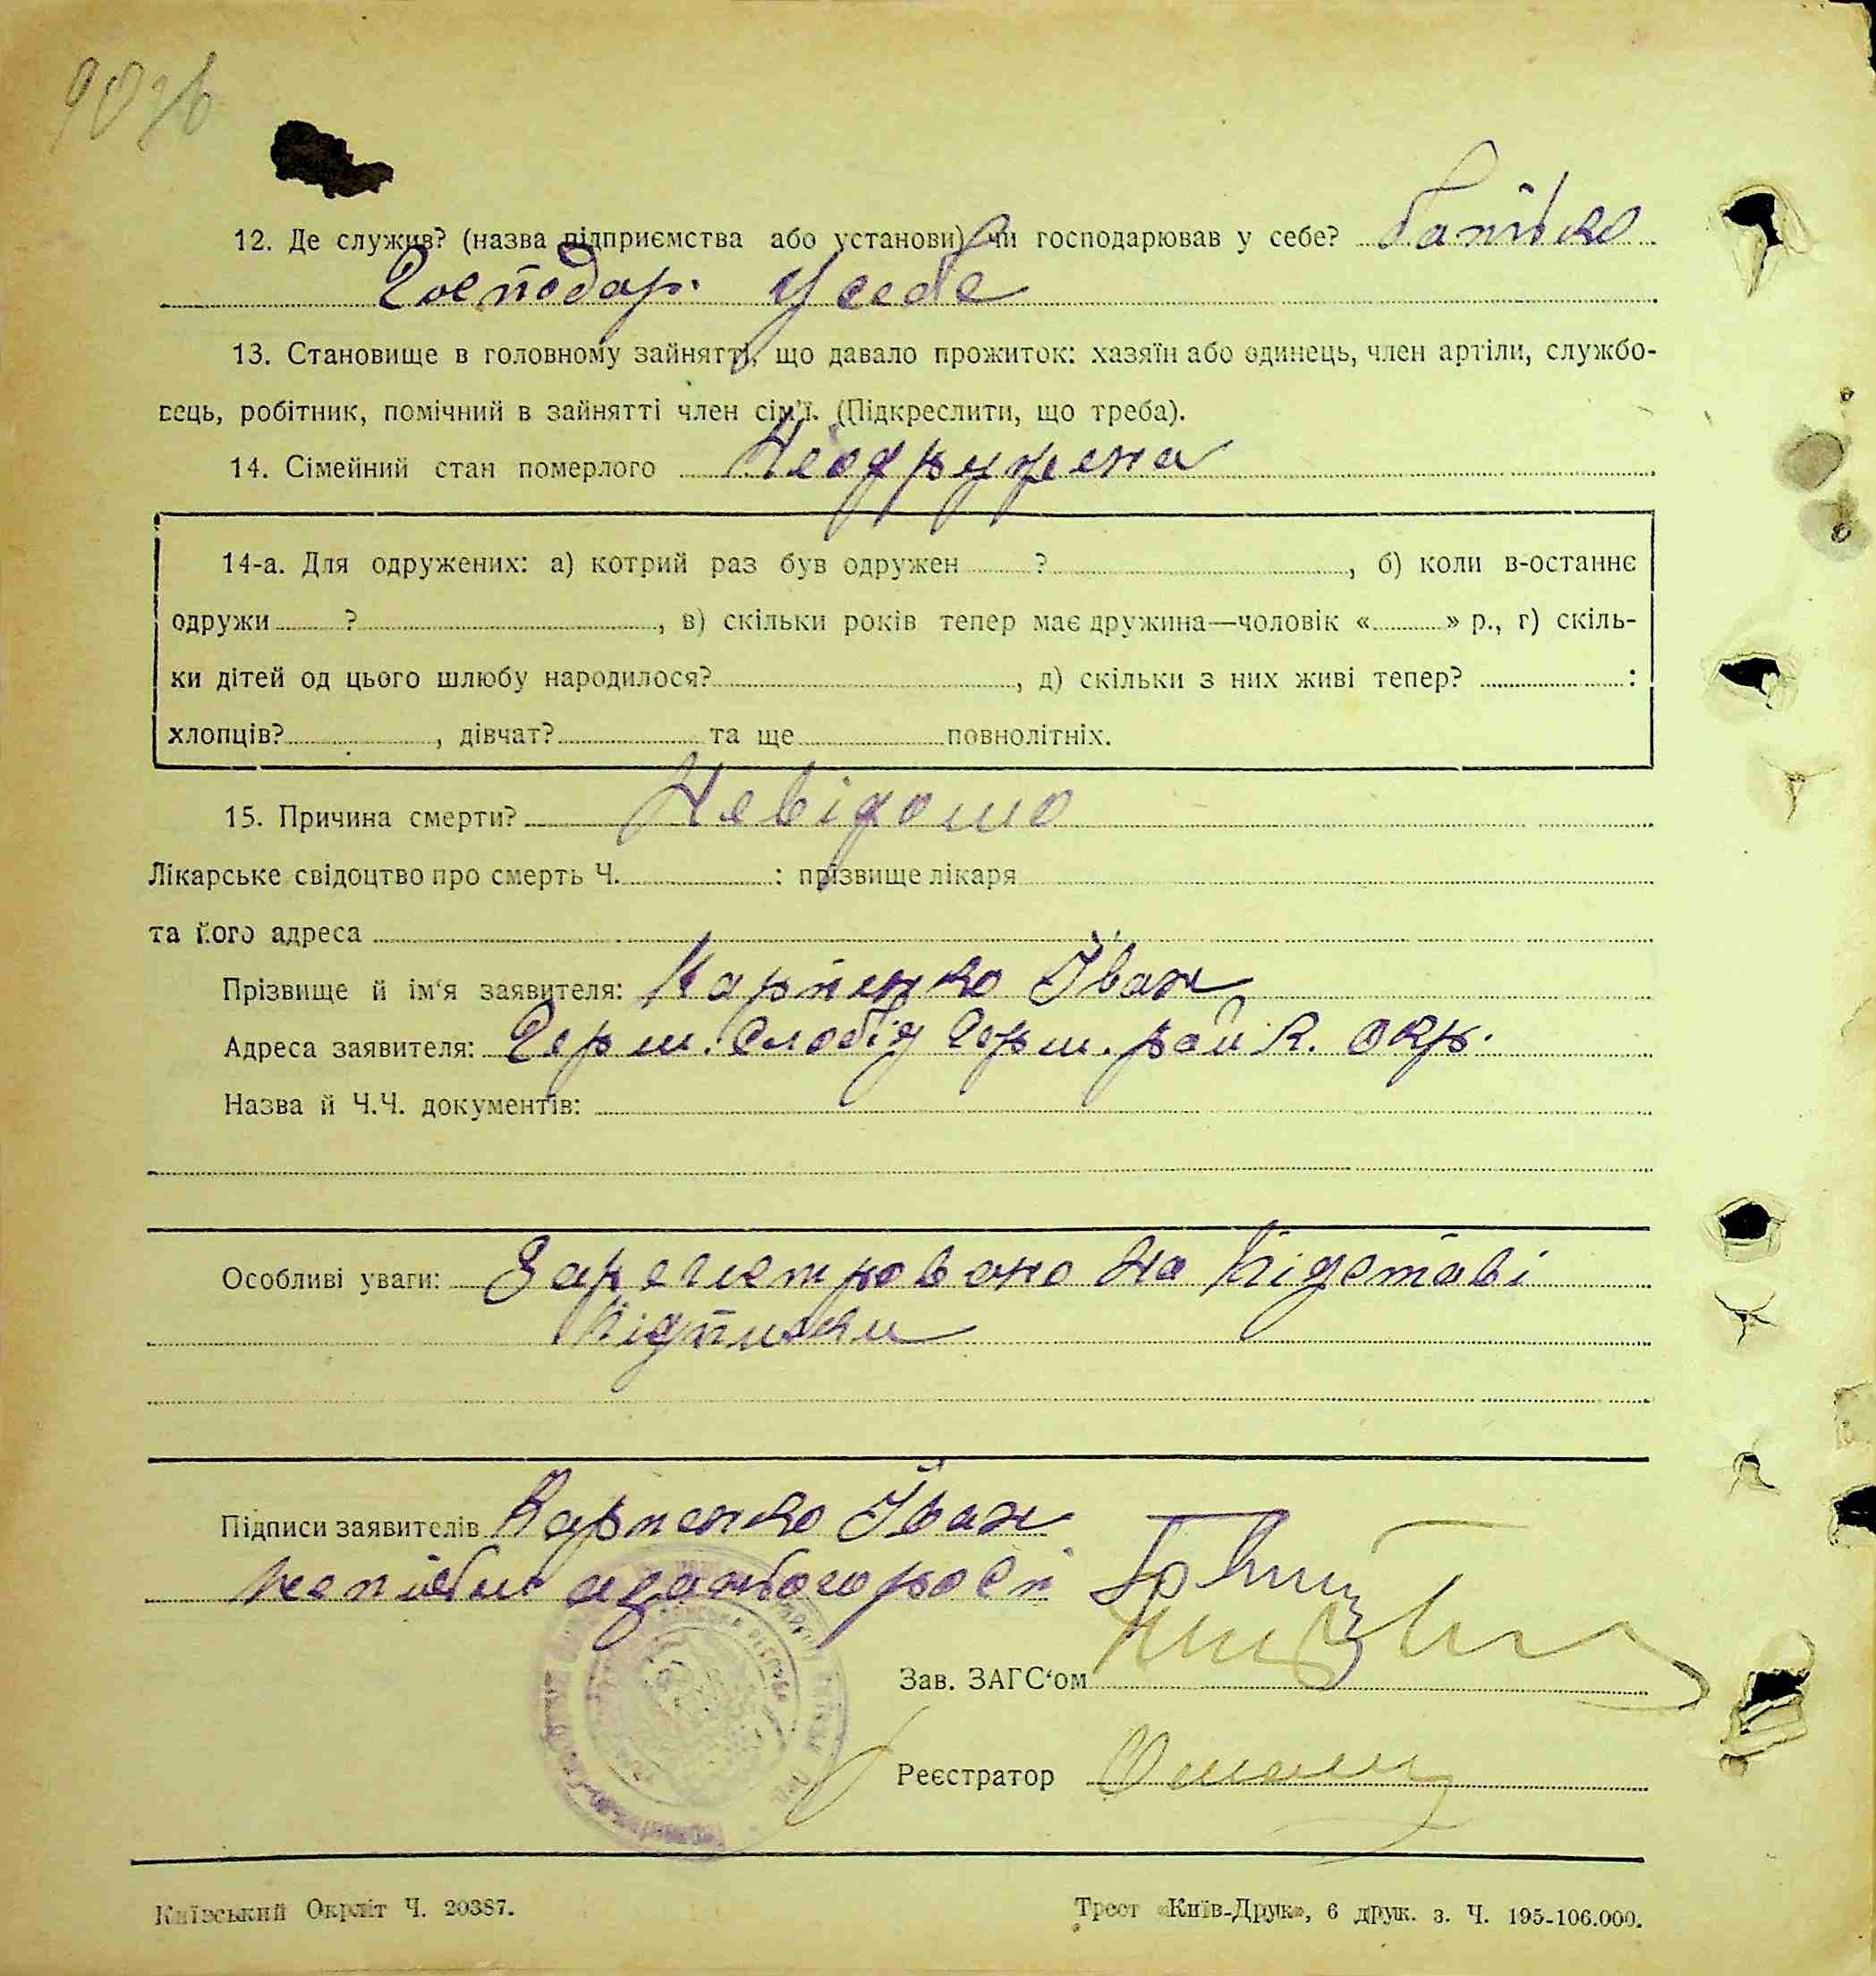 903б
12. Де служив? (назва підприємства або установи) чи господарював у себе? Батько
Господар. у себе
13. Становище в головному зайнятті, що давало прожиток: хазяїн або одинець, член артіли, службо-
вець, робітник, помічний в зайнятті член сім'ї. (Підкреслити, що треба).
14. Сімейний стан померлого Неодружена
14-а. Для одружених: а) котрий раз був одружен ? , б) коли в-останнє
одружи ? , в) скільки років тепер має дружина—чоловік « » р., г) скіль-
ки дітей од цього шлюбу народилося? , д) скільки з них живі тепер? :
хлопців? , дівчат? та ще повнолітніх.
15. Причина смерти? Невідомо
Лікарське свідоцтво про смерть Ч. : прізвище лікаря
та його адреса
Прізвище й ім'я заявителя: Карпенко Іван
Адреса заявителя: Герм. Слобід Герм. рай К. окр.
Назва й Ч.Ч. документів:
Особливі уваги: Зарегистровано на підставі
Підписи заявителів Карпенко Іван
Зав. ЗАГС'ом
Реєстратор
Київський Окрліт Ч. 20387.
Трест «Київ-Друк», 6 друк. з. Ч. 195-106.000.